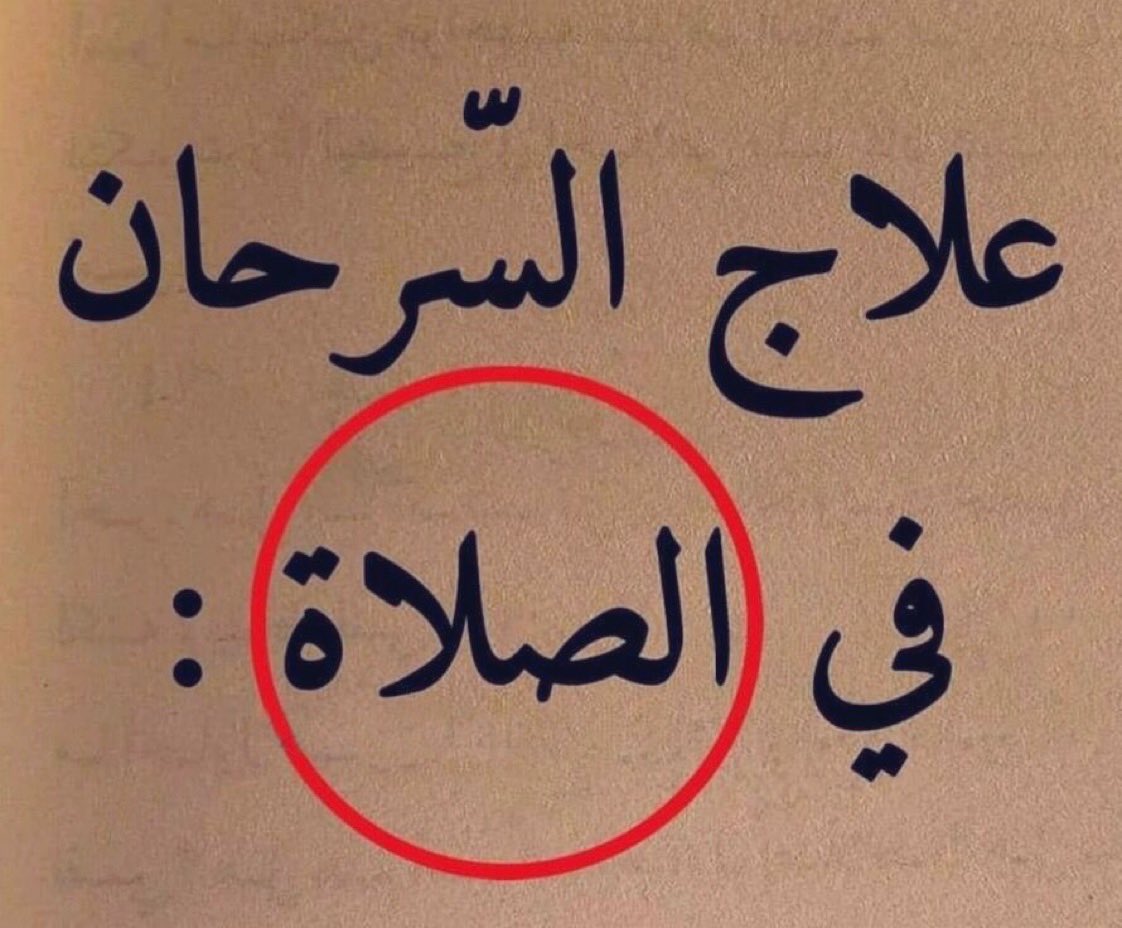 علاج السّرحان
في الصلاة :